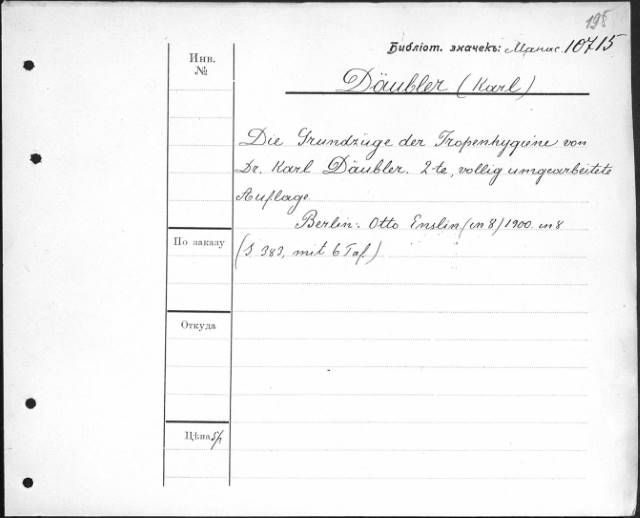 195
Библіот. значекъ: Манас. 10715
Инв.
№
Däubler (Karl)
Die Grundzüge der Tropenhygiene von
Dr. Karl Däubler. 2-te, vollig umgearbeitete
Auflage
Berlin: Otto Enslin (in 8) 1900. in 8
По заказу
(S. 383, mit 6 Taf.)
Откуда
Цѣна